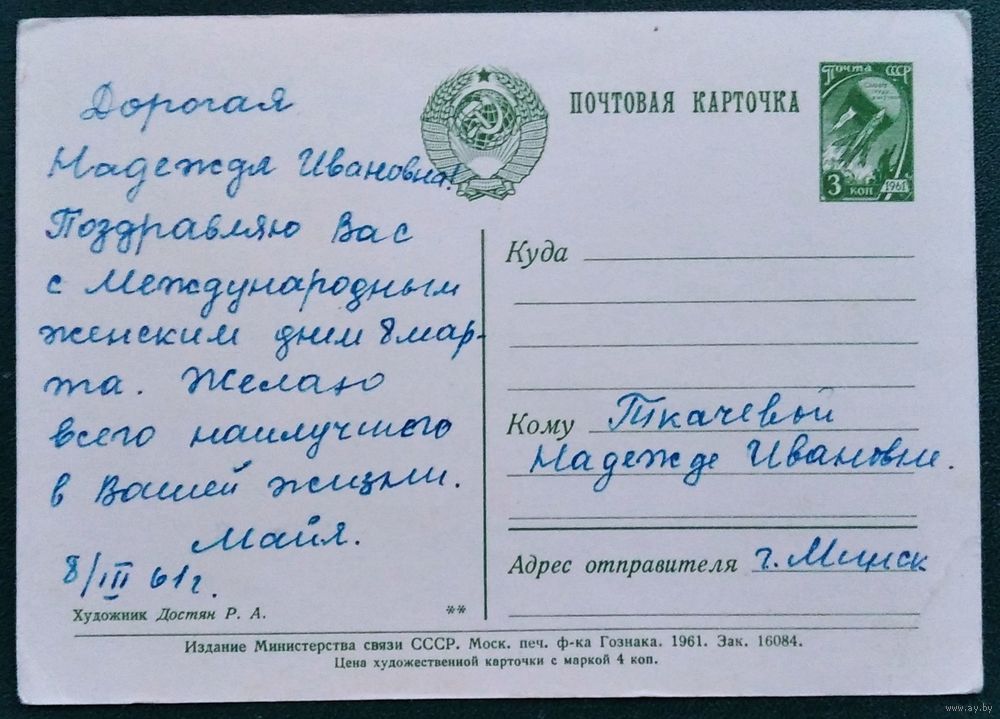 Дорогая
Надежда Ивановна!
Поздравляю Вас
с Международным
женским днем 8 мар-
та. Желаю
всего наилучшего
в Вашей жизни.
Майя.
8/III 61 г.
Художник Достян Р. А.
**
ПОЧТОВАЯ КАРТОЧКА
Почта СССР
3 коп
1961
Куда
Кому Ткачевой
Надежде Ивановне.
Адрес отправителя г. Минск
Издание Министерства связи СССР. Моск. печ. ф-ка Гознака. 1961. Зак. 16084.
Цена художественной карточки с маркой 4 коп.
www.ay.by